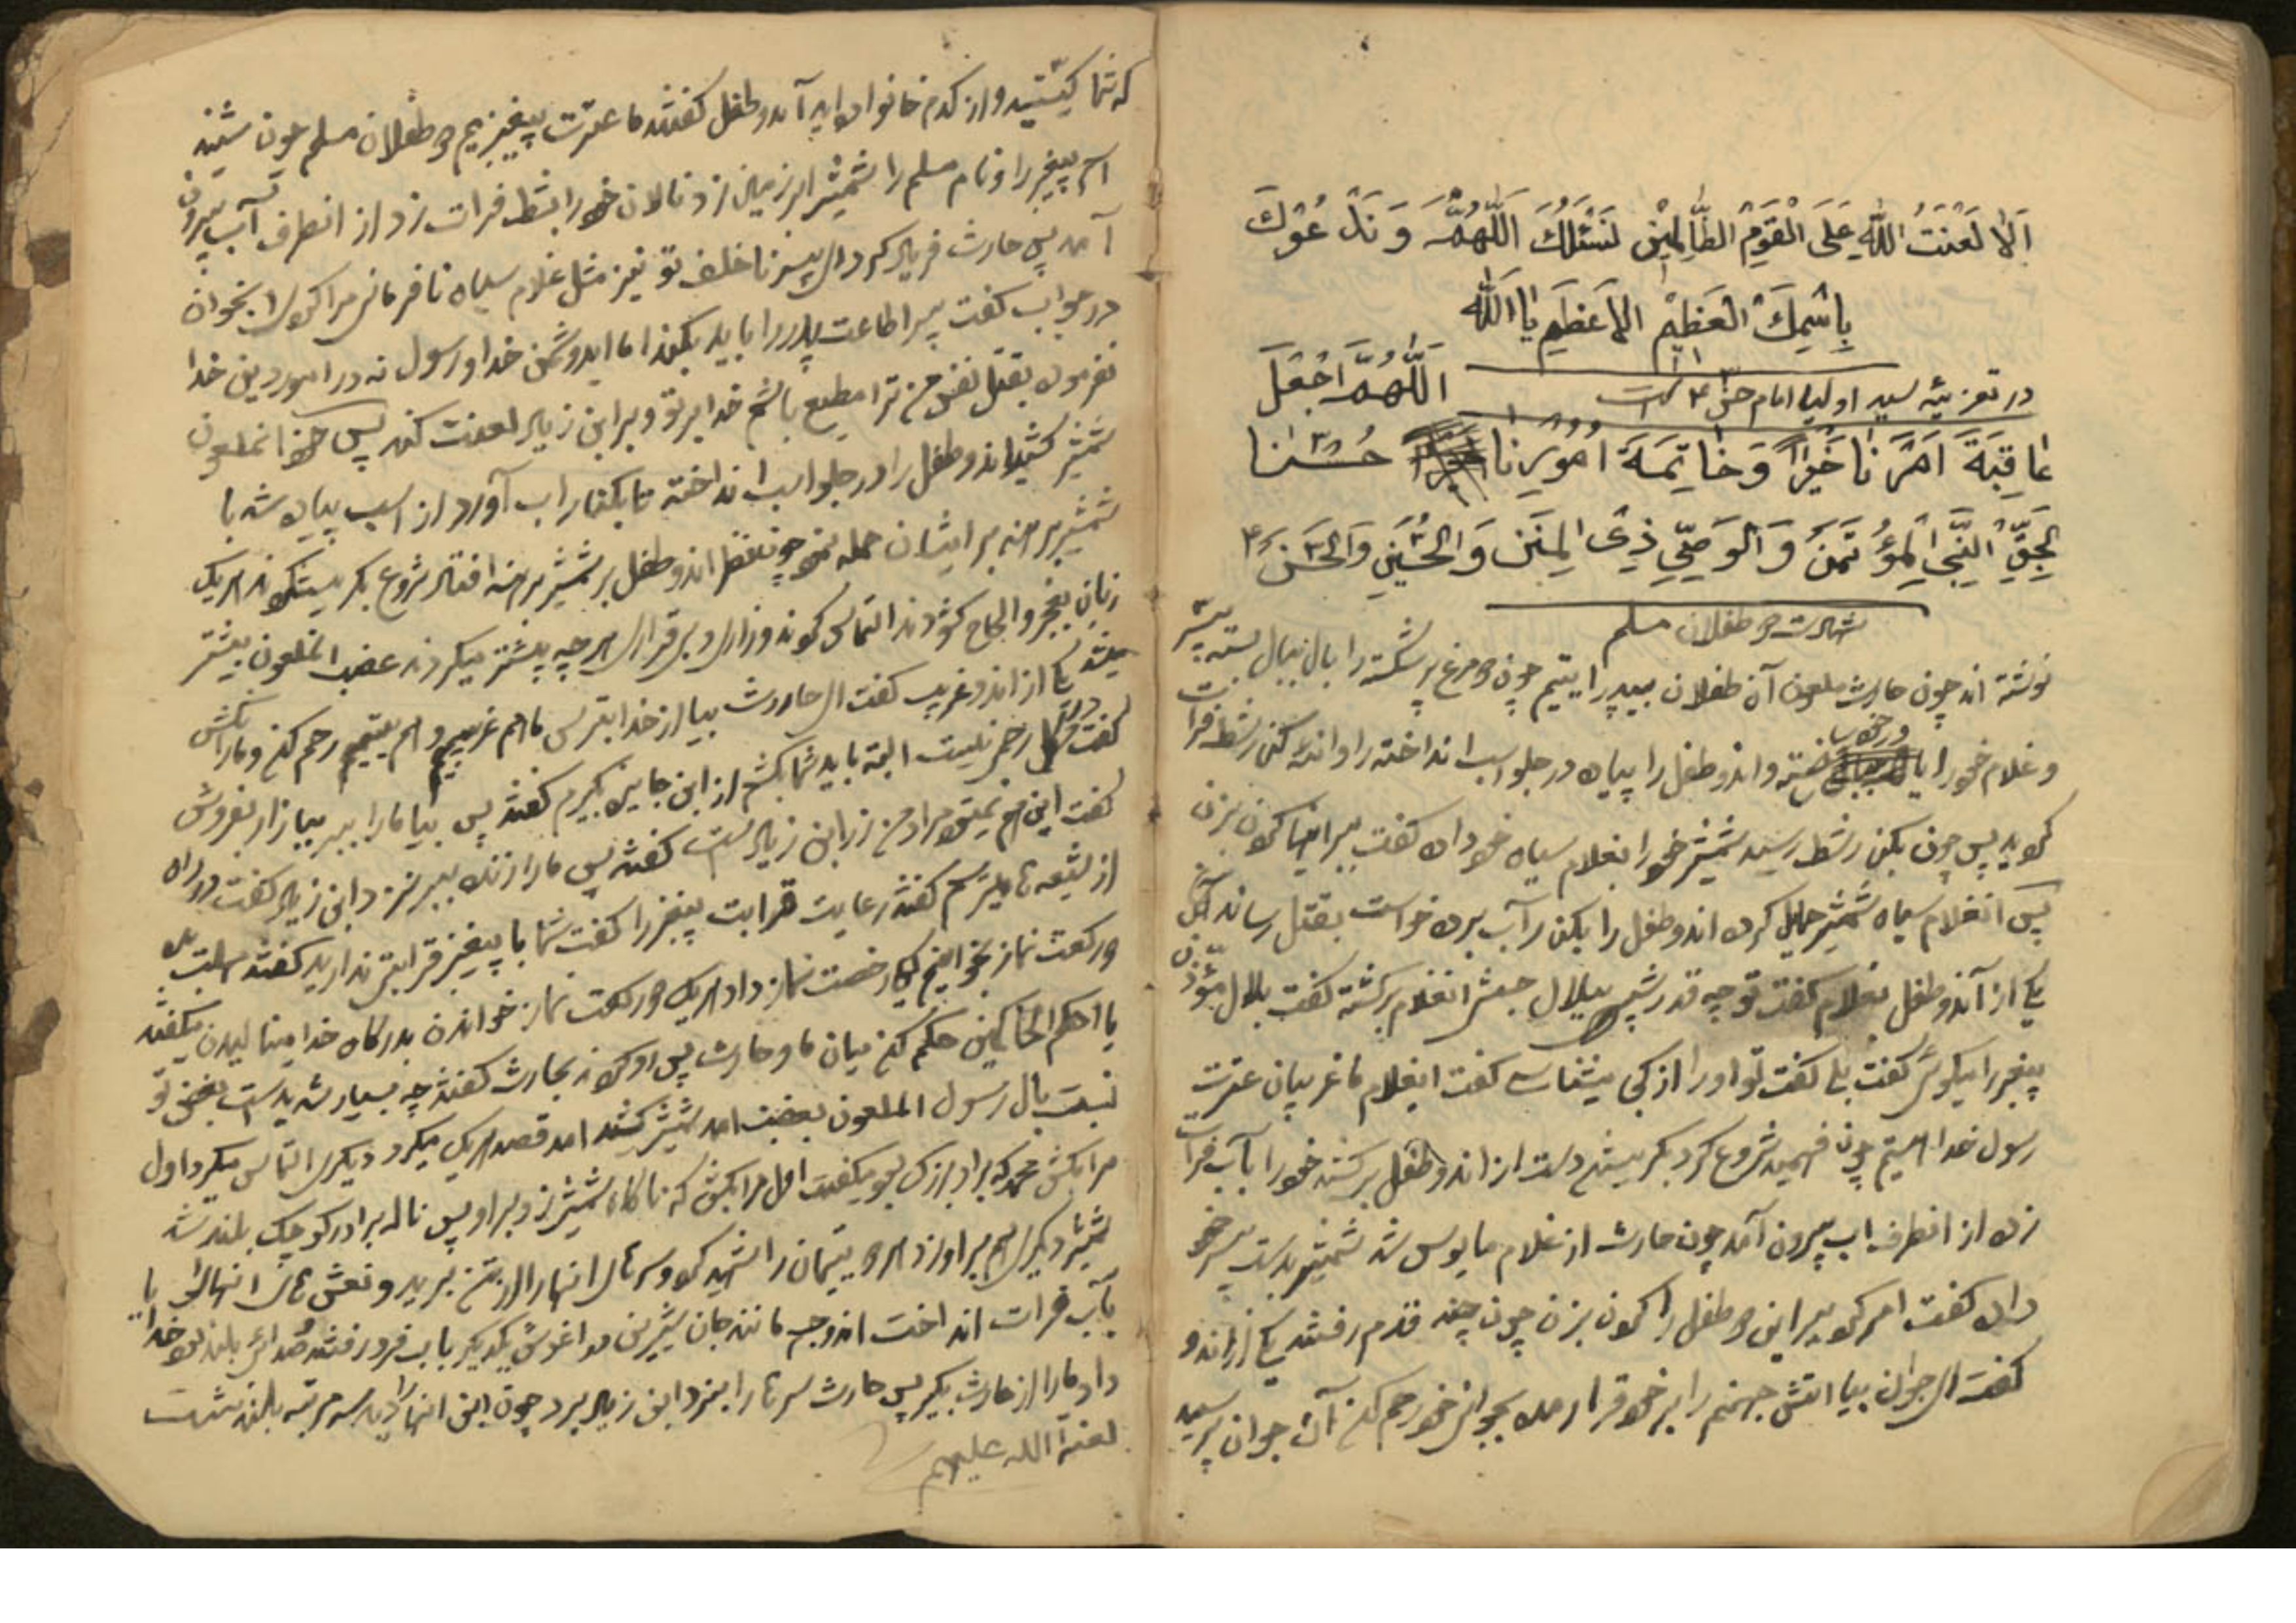 اَلٰا لَعْنَتُ اللّٰهِ عَلَی الْقَوْمِ الظّٰالِمِیْنَ نَسْئَلُكَ اَللّٰهُمَّ وَ نَدْعُوْكَ
بِاسْمِكَ الْعَظِیْمِ الْاَعْظَمِ یٰا اَللّٰه
در تعزیهٔ سید اولیا امام حسن ۴ است
اَللّٰهُمَّ اجْعَلْ
عٰاقِبَةَ اَمْرِنٰا خَیْراً وَ خٰاتِمَةَ اُمُوْرِنٰا حُسْنٰا
بِحَقِّ النَّبِیِّ الْمُؤْتَمَنِ وَ الْوَصِیِّ ذِی الْمِنَنِ وَ الْحُسَیْنِ وَ الْحَسَنِ ۴
شهادت دو طفلان مسلم
نوشته اند چون حارث ملعون آن طفلان بی پدر یتیم چون دو مرغ پر شکسته را بال ببال بسته
و غلام خود را با خود برداشته و اندو طفل را پیاده در جلو اسب انداخته روانه کنار شط فرات
کردید پس چون بکنار شط رسید شمشیر خود را بغلام سیاه خود داد گفت ببر اینها را کردن بزن
پس انغلام سیاه شمشیر حمایل کرده اندو طفل را بکنار آب برده خواست بقتل رساند
یکی از آندو طفل بغلام گفت تو چه قدر شبیهی ببلال حبشی انغلام برگشته گفت بلال مؤذن
پیغمبر را میگوئی گفت بلی گفت تو او را از کجا میشناسی گفت ایغلام ما غریبان عترت
رسول خدا هستیم چون فهمید شروع کرد بگریستن دست از اندو طفل برکشید خود را بآب فرات
زده از انطرف اب بیرون آمد چون حارث از غلام مایوس شد شمشیر بدست پسر خود
داده گفت امر کرد ببر این دو طفل را کردن بزن چون چند قدم رفتند یکی از اندو
گفت ای جوان بیا اتش جهنم را بر خود قرار مده بجوانی خود رحم کن آن جوان پرسید
که شما کیستید و از کدام خانواده اید آندو طفل گفتند ما عترت پیغمبریم دو طفلان مسلم چون شنید
اسم پیغمبر را و نام مسلم را شمشیر بر زمین زد نالان خود را بشط فرات زد از انطرف آب بیرون
آمد پس حارث فریاد کرد ای پسر ناخلف تو نیز مثل غلام سیاه نافرمانی مرا کردی انجوان
در جواب گفت پسر اطاعت پدر را باید بکند اما ایدشمن خدا و رسول نه در امور دین خدا
نفرموده بقتل نفس من ترا مطیع باشم خدا بر تو و بر ابن زیاد لعنت کند پس خود انملعون
شمشیر کشید اندو طفل را در جلو اسب انداخته تا بکنار اب آورد از اسب پیاده شد با
شمشیر برهنه بر ایشان حمله نمود چون نظر اندو طفل بر شمشیر برهنه افتاد شروع بگریستن کردند هر یک
زبان بعجز و الحاح گشودند التماس کردند و زاری و بیقراری هر چه بیشتر میکردند غضب انملعون بیشتر
میشد یکی از اندو غریب گفت ای حارث بیا از خدا بترس ما هم غریبیم و هم یتیمیم رحم کن و ما را مکش
گفت در دل من رحم نیست البته باید شما را بکشم از ابن جایزه بگیرم گفتند پس بیا ما را ببر ببازار بفروش
گفت این هم نمیشود مراد من زر ابن زیاد است گفتند پس ما را زنده ببر نزد ابن زیاد گفت در راه
از شیعه ها میترسم گفتند رعایت قرابت پیغمبر را گفت شما با پیغمبر قرابتی ندارید گفتند مهلت بده
دو رکعت نماز بخوانیم رخصت نماز داد هر یک دو رکعت نماز خواندن بدرگاه خدا مینالیدن میگفتند
یا احکم الحاکمین حکم کن میان ما و حارث پس رو کردند بحارث گفتند چه بسیار شدید است بغض تو
نسبت بال رسول الملعون بغضب امد شمشیر کشید امد قصد هر یک میکرد دیگری التماس میکرد اول
مرا بکش محمد که برادر بزرگ بود میگفت اول مرا بکش که ناگاه شمشیر زد بر او پس ناله برادر کوچک بلند شد
شمشیر دیگری هم بر او زد هر دو یتیمان را شهید کرد و سرهای انها را از تن برید و نعش های انها را
بآب فرات انداخت اندو جسم مانند جان شیرین در اغوش یکدیگر بآب فرو رفتند صدای بلند شد خدایا
داد ما را از حارث بگیر پس حارث سرها را بنزد ابن زیاد برد چون ابن انها را دید سه مرتبه بلند شد نشست
لعنة الله علیهم